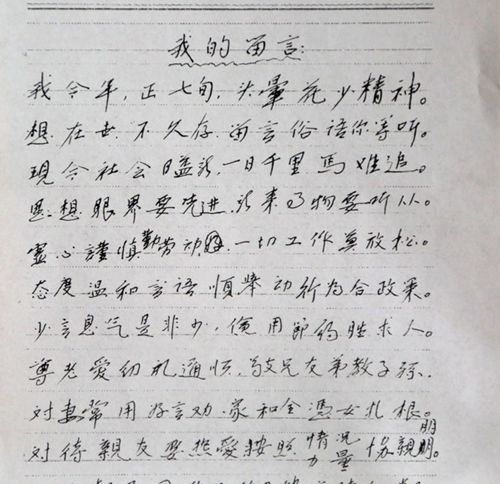 我的留言:
我今年,正七旬,头晕花少精神。
想在世,不久存,留言俗语你等听。
現今社会日益新,一日千里馬难追。
思想眼界要先进,新来事物要听从。
灵心謹慎勤劳动,一切工作莫放松。
态度温和言語慎,舉动行为合政策。
少言息气是非少,俭用節约胜求人。
尊老愛幼礼通恒,敬兄友弟教子孫.
对妻常用好言劝,家和全憑女扎根。
对待親友要热愛按照情况力量恊親朋。